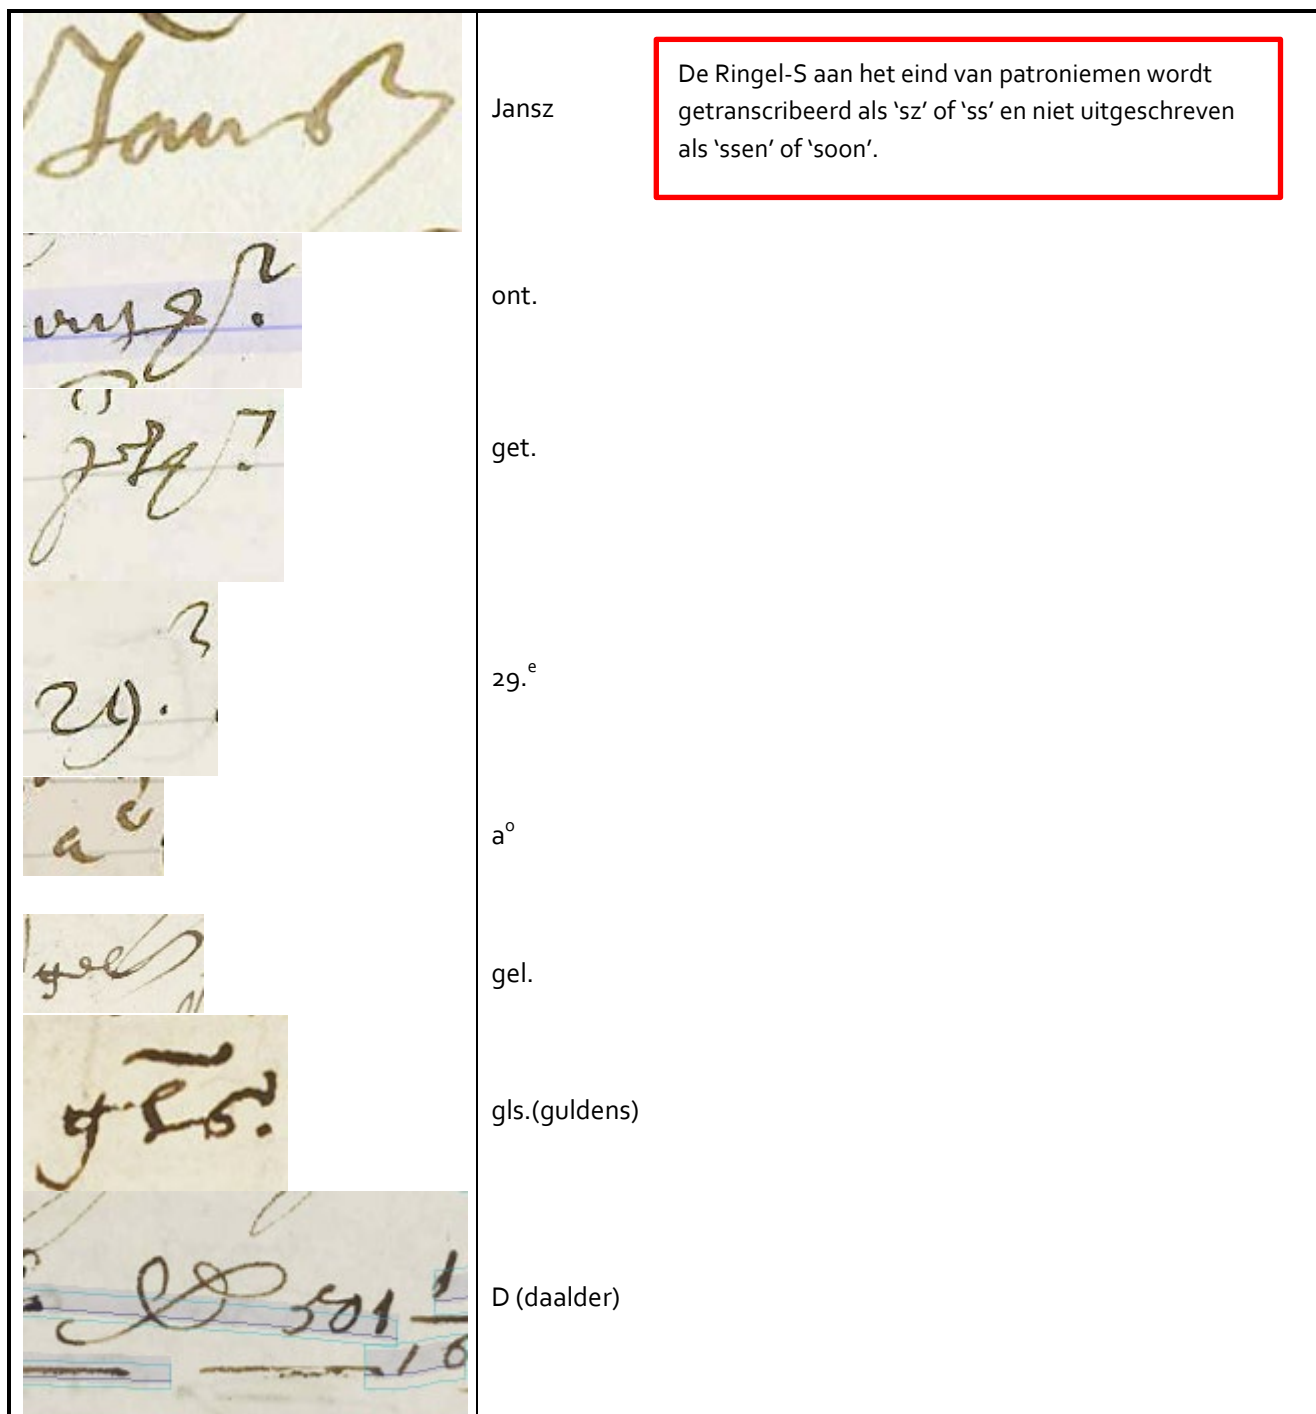 Jansz
Jansz
De Ringel-S aan het eind van patroniemen wordt
getranscribeerd als ‘sz’ of ‘ss’ en niet uitgeschreven
als ‘ssen’ of ‘soon’.
ont.
get.
29.
29.ᵉ
a
aᵒ
gel.
gel.
gls.
gls.(guldens)
D 501 1
16
D (daalder)